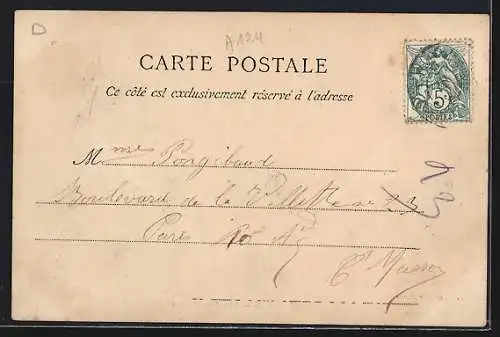 D
A124
CARTE POSTALE
Ce côté est exclusivement réservé à l'adresse
5c
POSTES
Mmes Pongibaud
Boulevard de la Villette no 23
Paris 10e Ar